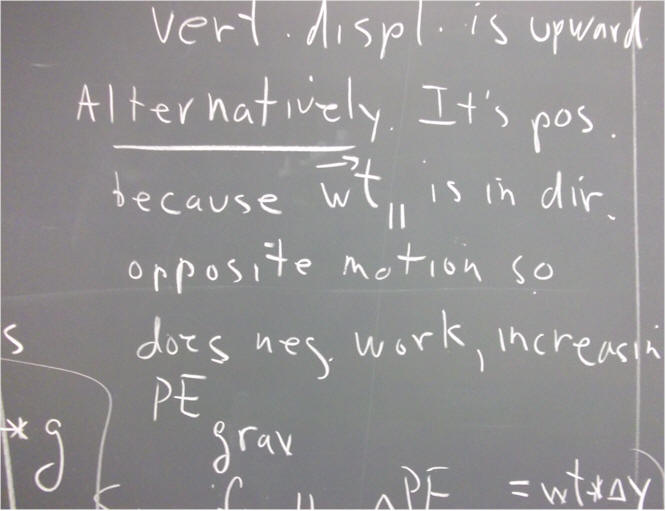 vert. displ. is upward
Alternatively. It's pos.
because wt⃗|| is in dir.
opposite motion so
s does neg. work, increasin
PE grav
*g
if || ΔPE = wt*Δy